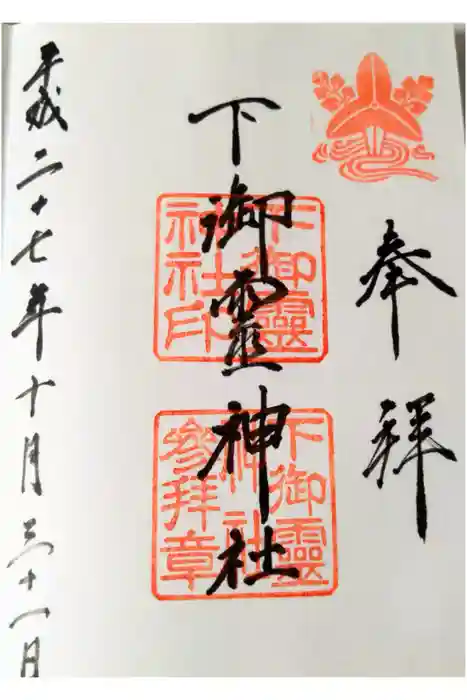 奉拝
下御靈神社
下御靈
神社印
下御靈
神社
參拜章
平成二十七年十月三十一日